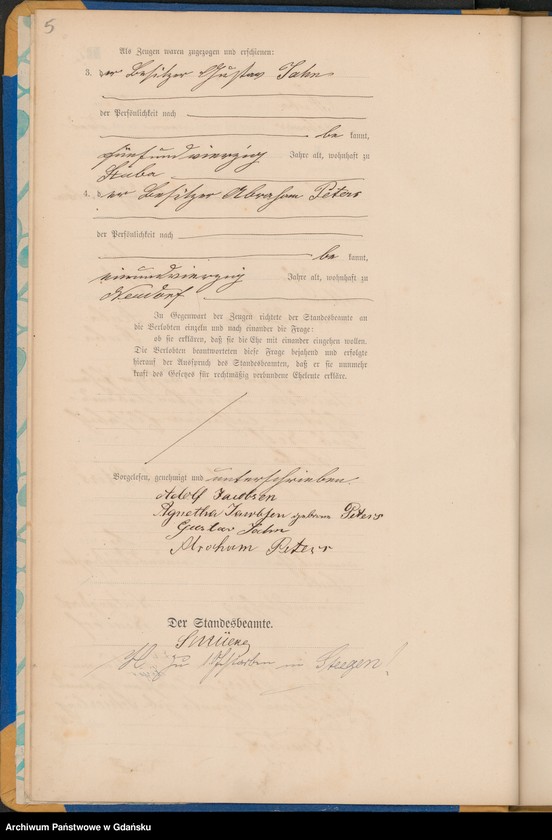 5
Als Zeugen waren zugezogen und erschienen:
3. der Besitzer Gustav Jahn
der Persönlichkeit nach
be kannt,
fünfundvierzig Jahre alt, wohnhaft zu
Stuba
4. der Besitzer Abraham Peters
der Persönlichkeit nach
be kannt,
vierundvierzig Jahre alt, wohnhaft zu
Neudorf
In Gegenwart der Zeugen richtete der Standesbeamte an
die Verlobten einzeln und nach einander die Frage:
ob sie erklären, daß sie die Ehe mit einander eingehen wollen.
Die Verlobten beantworteten diese Frage bejahend und erfolgte
hierauf der Ausspruch des Standesbeamten, daß er sie nunmehr
kraft des Gesetzes für rechtmäßig verbundene Eheleute erkläre.
Vorgelesen, genehmigt und unterschrieben.
Adolf Jacobsen
Agnetha Jacobsen geborne Peters
Gustav Jahn
Abraham Peters
Der Standesbeamte.
zu in Stegen!
Archiwum Państwowe w Gdańsku